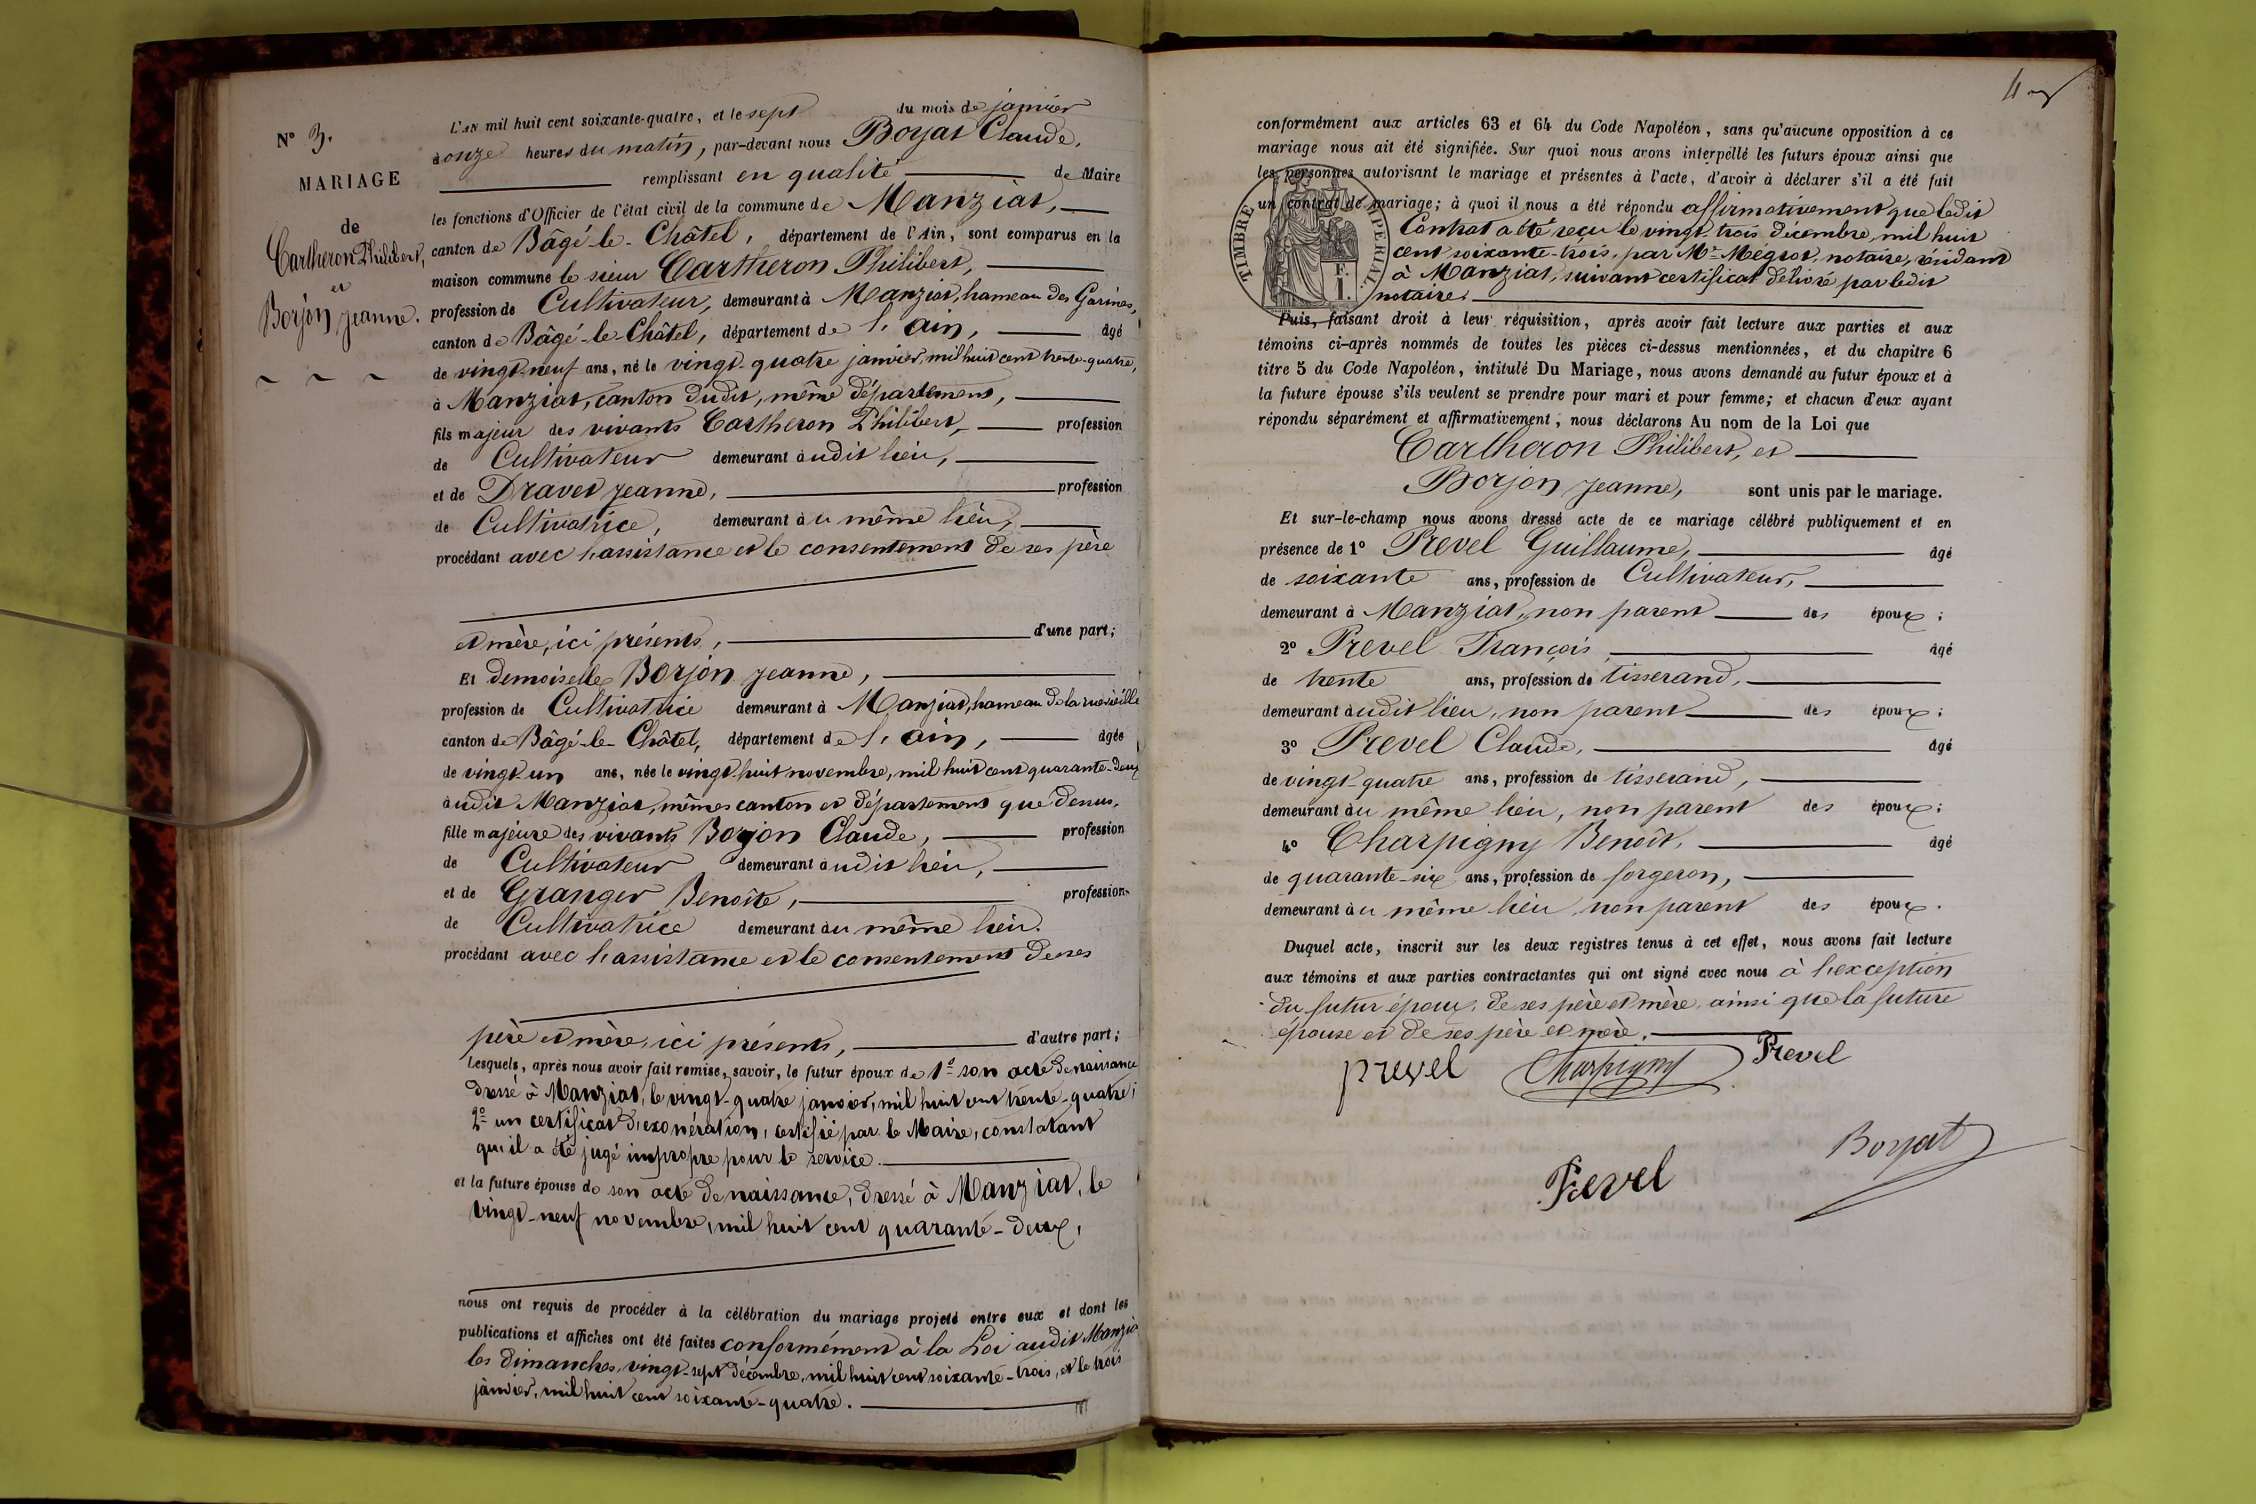 N° 3.
MARIAGE
de
Cartheron Philibert,
et
Borjon Jeanne.
L'AN mil huit cent soixante-quatre, et le sept du mois de janvier
à onze heures du matin, par-devant nous Boyat Claude,
remplissant en qualité de Maire
les fonctions d'Officier de l'état civil de la commune de Manziat,
canton de Bâgé-le-Châtel, département de l'Ain, sont comparus en la
maison commune le sieur Cartheron Philibert,
profession de Cultivateur, demeurant à Manziat, hameau des Garines,
canton de Bâgé-le-Châtel, département de l'ain, âgé
de vingt-neuf ans, né le vingt-quatre janvier, mil huit cent trente-quatre,
à Manziat, canton dudit, même département,
fils majeur des vivants Cartheron Philibert, profession
de Cultivateur demeurant audit lieu,
et de Dravet Jeanne, profession
de Cultivatrice, demeurant au même lieu,
procédant avec l'assistance et le consentement de ses père
et mère, ici présents, d'une part;
Et demoiselle Borjon Jeanne,
profession de Cultivatrice demeurant à Manziat, hameau de la rue vieille
canton de Bâgé-le-Châtel, département de l'ain, âgée
de vingt-un ans, née le vingt-huit novembre, mil huit cent quarante-deux
audit Manziat, mêmes canton et département que dessus,
fille majeure des vivants Borjon Claude, profession
de Cultivateur demeurant audit lieu,
et de Granger Benoîte, profession
de Cultivatrice demeurant au même lieu.
procédant avec l'assistance et le consentement de ses
père et mère, ici présents, d'autre part;
Lesquels, après nous avoir fait remise, savoir, le futur époux de 1° son acte de naissance
dressé à Manziat, le vingt-quatre janvier, mil huit cent trente-quatre;
2° un certificat d'exonération, certifié par le Maire, constatant
qu'il a été jugé impropre pour le service.
et la future épouse de son acte de naissance, dressé à Manziat, le
vingt-neuf novembre, mil huit cent quarante-deux,
nous ont requis de procéder à la célébration du mariage projeté entre eux et dont les
publications et affiches ont été faites conformément à la Loi audit Manziat
les dimanches, vingt-sept décembre, mil huit cent soixante-trois, et le trois
janvier, mil huit cent soixante-quatre.
conformément aux articles 63 et 64 du Code Napoléon, sans qu'aucune opposition à ce
mariage nous ait été signifiée. Sur quoi nous avons interpéllé les futurs époux ainsi que
les personnes autorisant le mariage et présentes à l'acte, d'avoir à déclarer s'il a été fait
un contrat de mariage; à quoi il nous a été répondu affirmativement que ledit
Contrat a été reçu le vingt trois décembre, mil huit
cent soixante-trois, par Me Mégrot, notaire, résidant
à Manziat, suivant certificat délivré par ledit
notaire.
TIMBRE IMPERIAL
F.
1.
Puis, faisant droit à leur réquisition, après avoir fait lecture aux parties et aux
témoins ci-après nommés de toutes les pièces ci-dessus mentionnées, et du chapitre 6
titre 5 du Code Napoléon, intitulé Du Mariage, nous avons demandé au futur époux et à
la future épouse s'ils veulent se prendre pour mari et pour femme; et chacun d'eux ayant
répondu séparément et affirmativement, nous déclarons Au nom de la Loi que
Cartheron Philibert, et
Borjon Jeanne, sont unis par le mariage.
Et sur-le-champ nous avons dressé acte de ce mariage célébré publiquement et en
présence de 1° Prevel Guillaume, âgé
de soixante ans, profession de Cultivateur,
demeurant à Manziat, non parent des époux;
2° Prevel François, âgé
de trente ans, profession de tisserand,
demeurant audit lieu, non parent des époux;
3° Prevel Claude, âgé
de vingt-quatre ans, profession de tisserand,
demeurant au même lieu, non parent des époux;
4° Charpigny Benoît, âgé
de quarante-six ans, profession de forgeron,
demeurant au même lieu non parent des époux.
Duquel acte, inscrit sur les deux registres tenus à cet effet, nous avons fait lecture
aux témoins et aux parties contractantes qui ont signé avec nous à l'exception
du futur époux, de ses père et mère, ainsi que la future
épouse et de ses père et mère.
prevel Charpigny Prevel
Boyat
Prevel